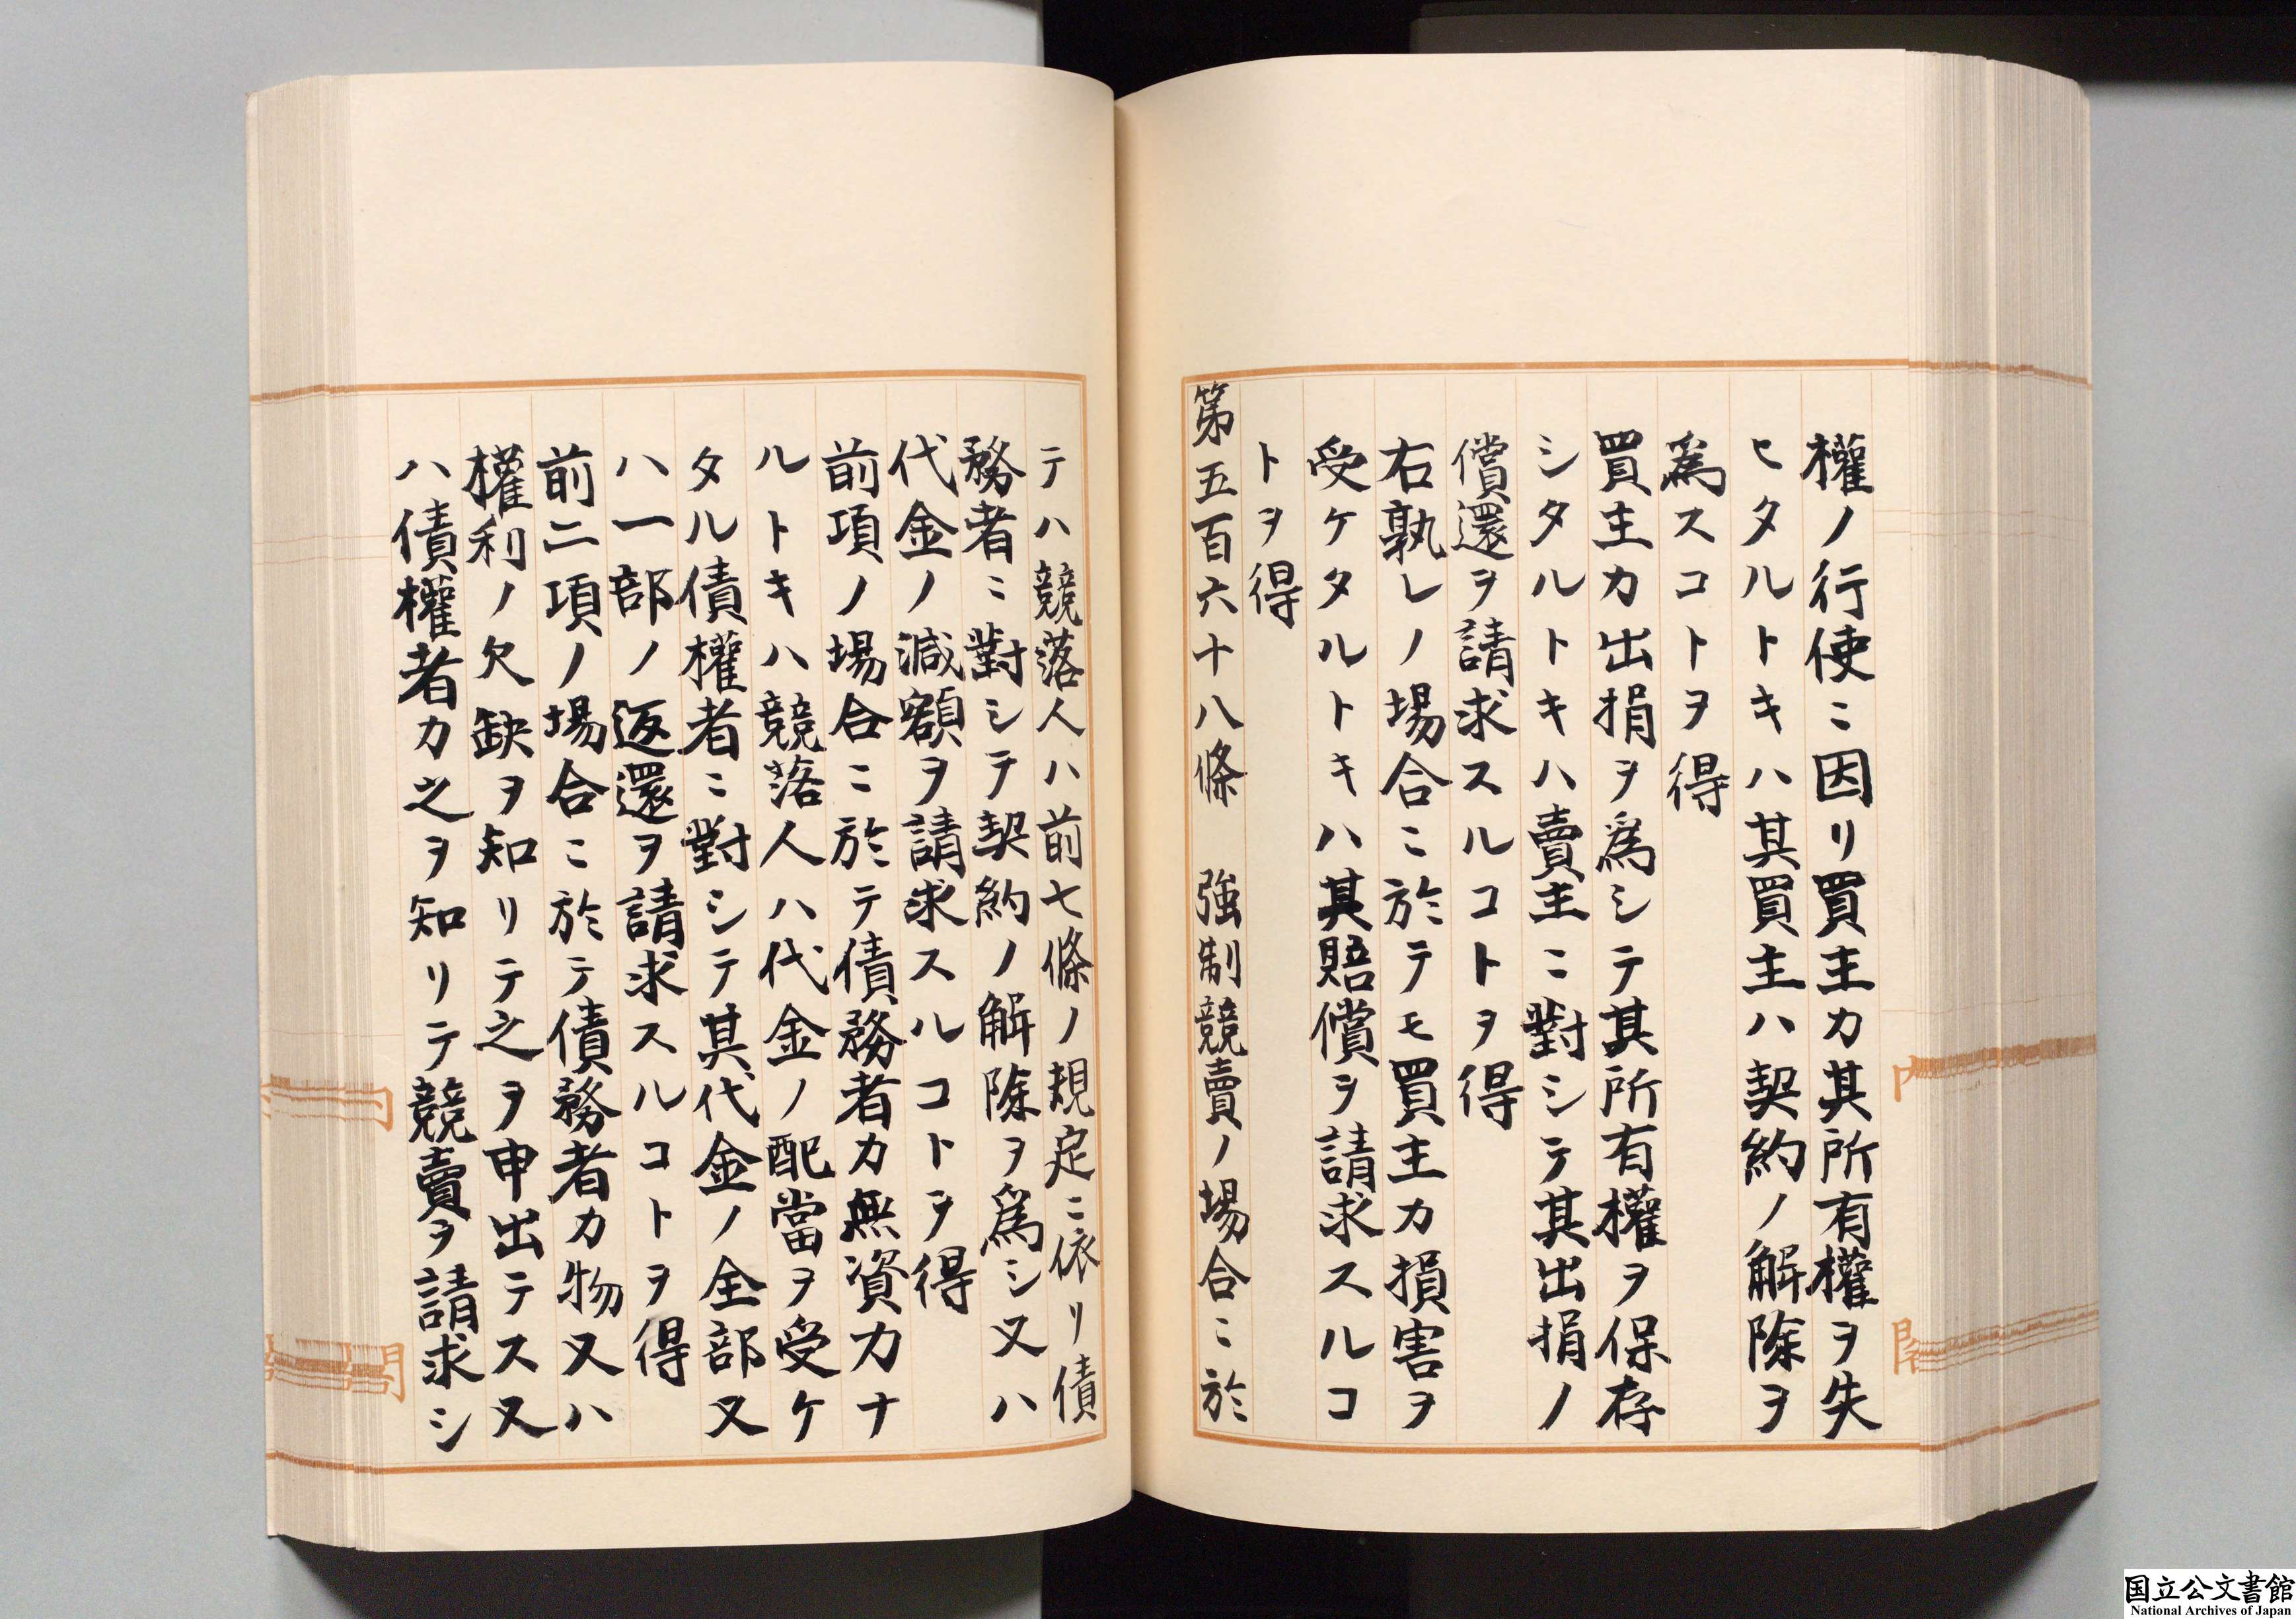 權ノ行使ニ因リ買主カ其所有權ヲ失
ヒタルトキハ其買主ハ契約ノ解除ヲ
爲スコトヲ得
買主カ出捐ヲ爲シテ其所有權ヲ保存
シタルトキハ賣主ニ對シテ其出捐ノ
償還ヲ請求スルコトヲ得
右孰レノ場合ニ於テモ買主カ損害ヲ
受ケタルトキハ其賠償ヲ請求スルコ
トヲ得
第五百六十八條 強制競賣ノ場合ニ於
テハ競落人ハ前七條ノ規定ニ依リ債
務者ニ對シテ契約ノ解除ヲ爲シ又ハ
代金ノ減額ヲ請求スルコトヲ得
前項ノ場合ニ於テ債務者カ無資力ナ
ルトキハ競落人ハ代金ノ配當ヲ受ケ
タル債權者ニ對シテ其代金ノ全部又
ハ一部ノ返還ヲ請求スルコトヲ得
前二項ノ場合ニ於テ債務者カ物又ハ
權利ノ欠缺ヲ知リテ之ヲ申出テス又
ハ債權者カ之ヲ知リテ競賣ヲ請求シ
国立公文書館
National Archives of Japan